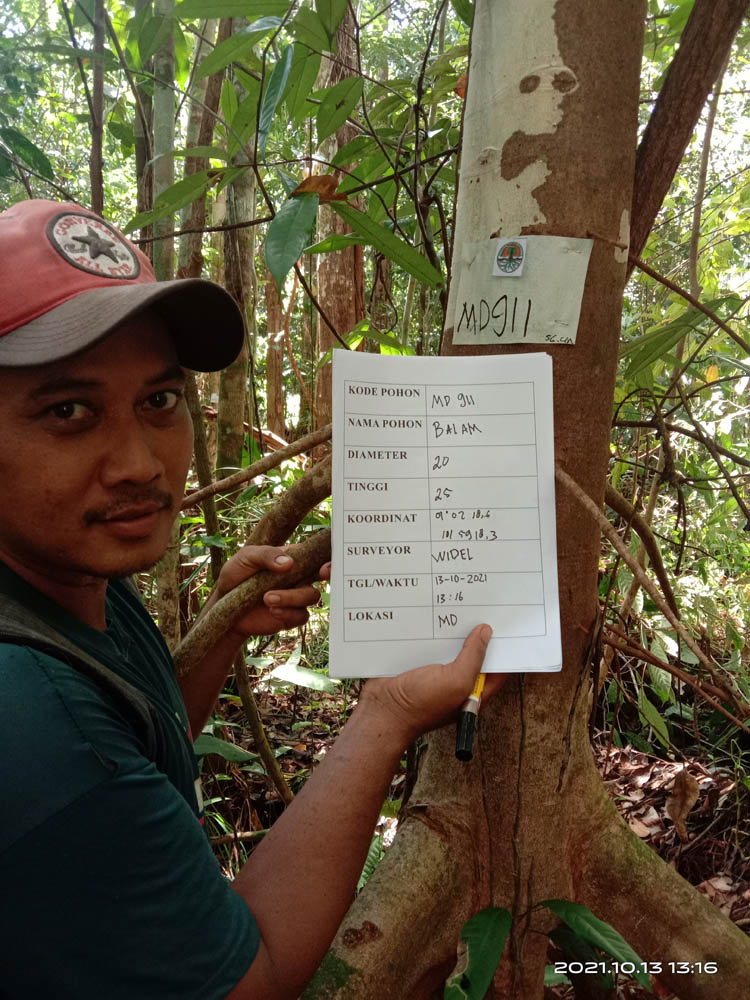 CONVERSE
MD911
56.cm
KODE POHON MD 911
NAMA POHON BALAM
DIAMETER 20
TINGGI 25
KOORDINAT 01° 02 18,6
101 59 18,3
SURVEYOR WIDEL
TGL/WAKTU 13-10-2021
13:16
LOKASI MD
2021.10.13 13:16